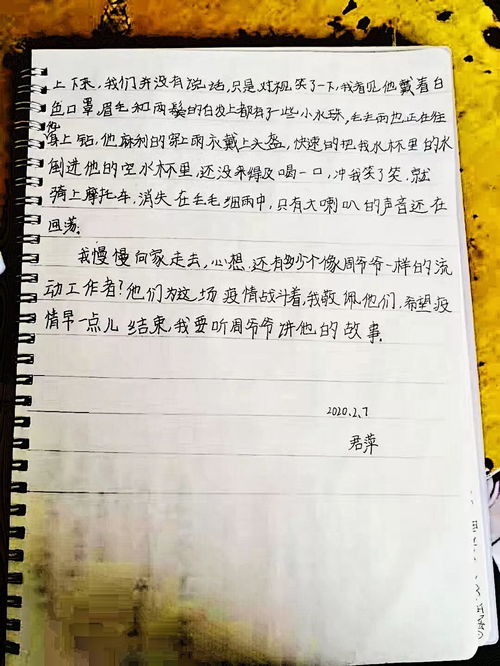 上下来，我们并没有说话，只是对视笑了一下，我看见他戴着白
色口罩，眉毛和两鬓的白发上都有了一些小水珠，毛毛雨也正在往
他
身上钻，他麻利的穿上雨衣戴上头盔，快速的把我水杯里的水
倒进他的空水杯里，还没来得及喝一口，冲我笑了笑，就
骑上摩托车，消失在毛毛细雨中，只有大喇叭的声音还在
回荡。
我慢慢向家走去，心想，还有多少个像周爷爷一样的流
动工作者？他们为这场疫情战斗着，我敬佩他们，希望疫
情早一点儿结束，我要听周爷爷讲他的故事。
2020.2.7
君萍